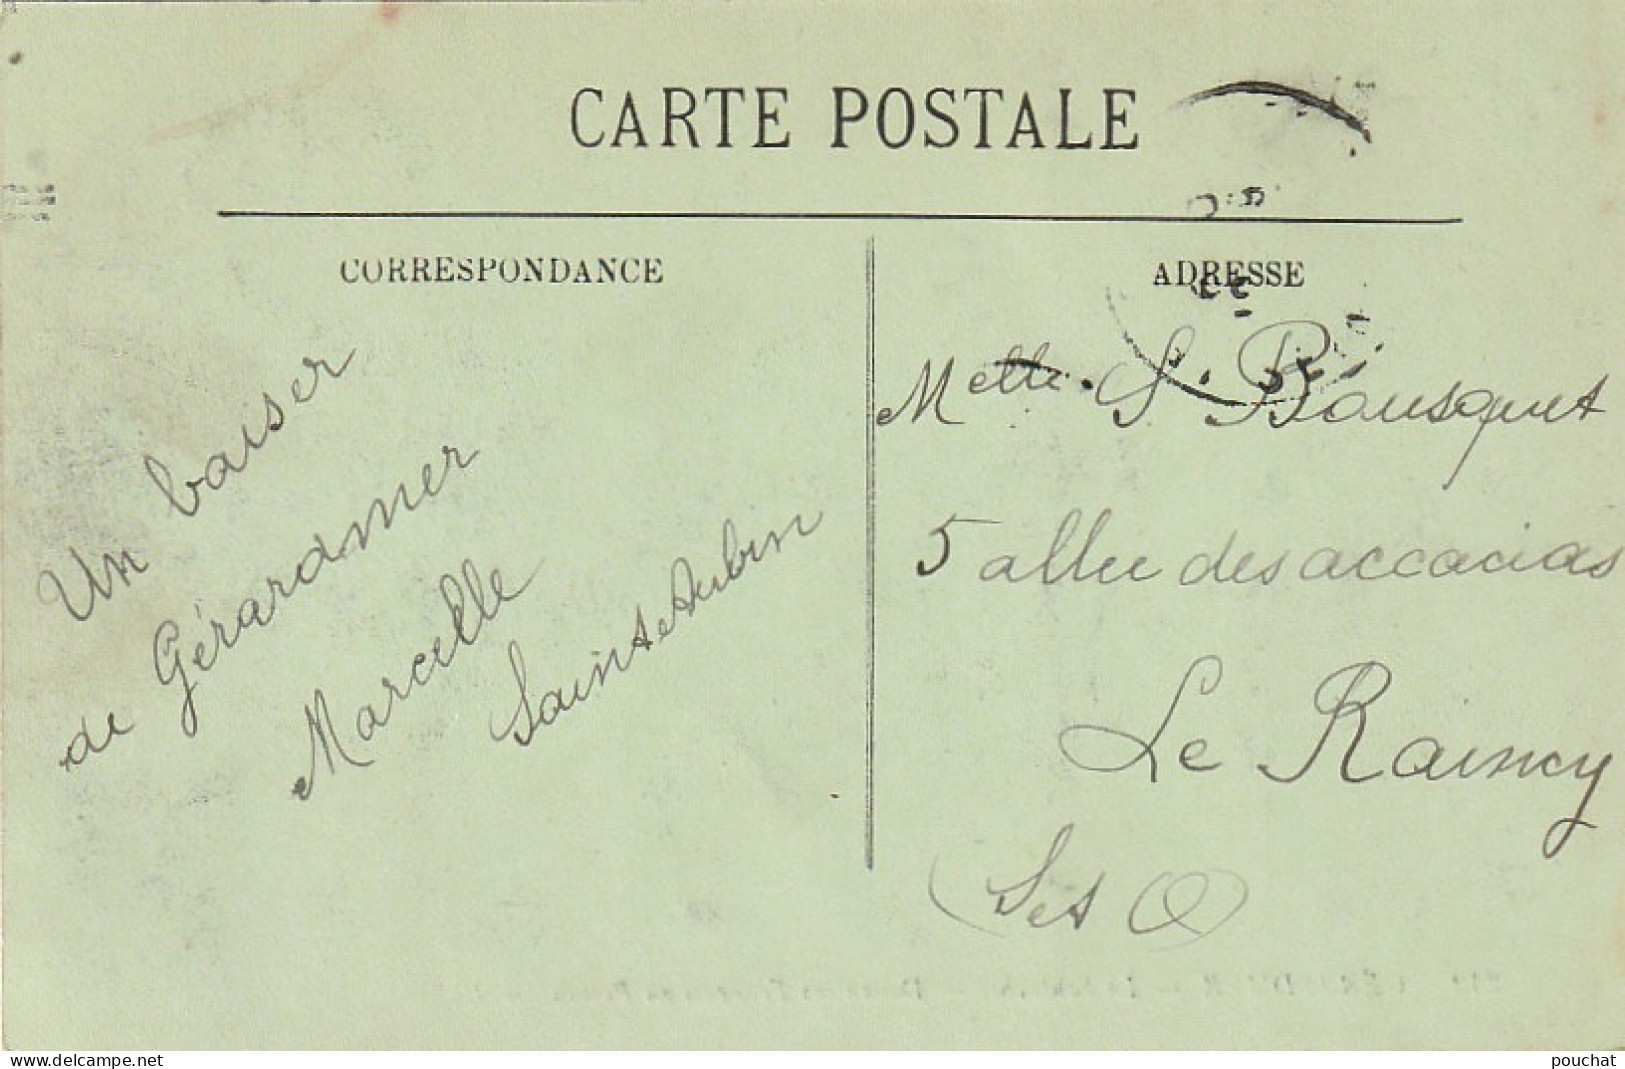 CARTE POSTALE
CORRESPONDANCE
ADRESSE
Un baiser
de Gérardmer
Marcelle
Sainte Aubin
Melle. S. Bousquet
5 allee des accacias
Le Raincy
(Set O)
delcampe.net
pouchat